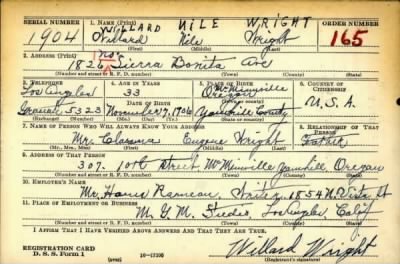 SERIAL NUMBER 1. NAME (Print) ORDER NUMBER
WILLARD NILE WRIGHT
1904 Willard Nile Wright 165
(First) (Middle) (Last)
2. ADDRESS (Print)
No.
1826 Sierra Bonita Ave
(Number and street or R. F. D. number) (Town) (County) (State)
3. TELEPHONE 4. AGE IN YEARS 5. PLACE OF BIRTH 6. COUNTRY OF CITIZENSHIP
Los Angeles 33 McMinnville Oregon
DATE OF BIRTH (Town or county)
Granite 5323 November 7, 1906 Yamhill County U.S.A.
(Exchange) (Number) (Mo.) (Day) (Yr.) (State or country)
7. NAME OF PERSON WHO WILL ALWAYS KNOW YOUR ADDRESS 8. RELATIONSHIP OF THAT PERSON
Mr. Clarence Eugene Wright Father
(Mr., Mrs., Miss) (First) (Middle) (Last)
9. ADDRESS OF THAT PERSON
307 10th Street McMinnville Yamhill Oregon
(Number and street or R. F. D. number) (Town) (County) (State)
10. EMPLOYER'S NAME
Mr. Harris 1854 N. Vista St
11. PLACE OF EMPLOYMENT OR BUSINESS
M.G.M. Studio, Los Angeles, Calif
(Number and street or R. F. D. number) (Town) (County) (State)
I AFFIRM THAT I HAVE VERIFIED ABOVE ANSWERS AND THAT THEY ARE TRUE.
REGISTRATION CARD
D. S. S. Form 1 (over) Willard Wright
(Registrant's signature)